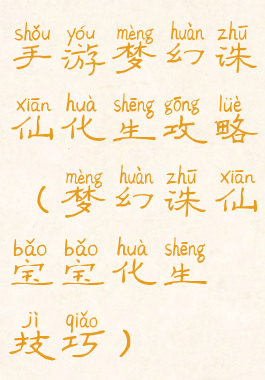 shǒu yóu mèng huàn zhū
手游梦幻诛
xiān huà shēng gōng lüè
仙化生攻略
mèng huàn zhū xiān
（梦幻诛仙
bǎo bǎo huà shēng
宝宝化生
jì qiǎo
技巧）